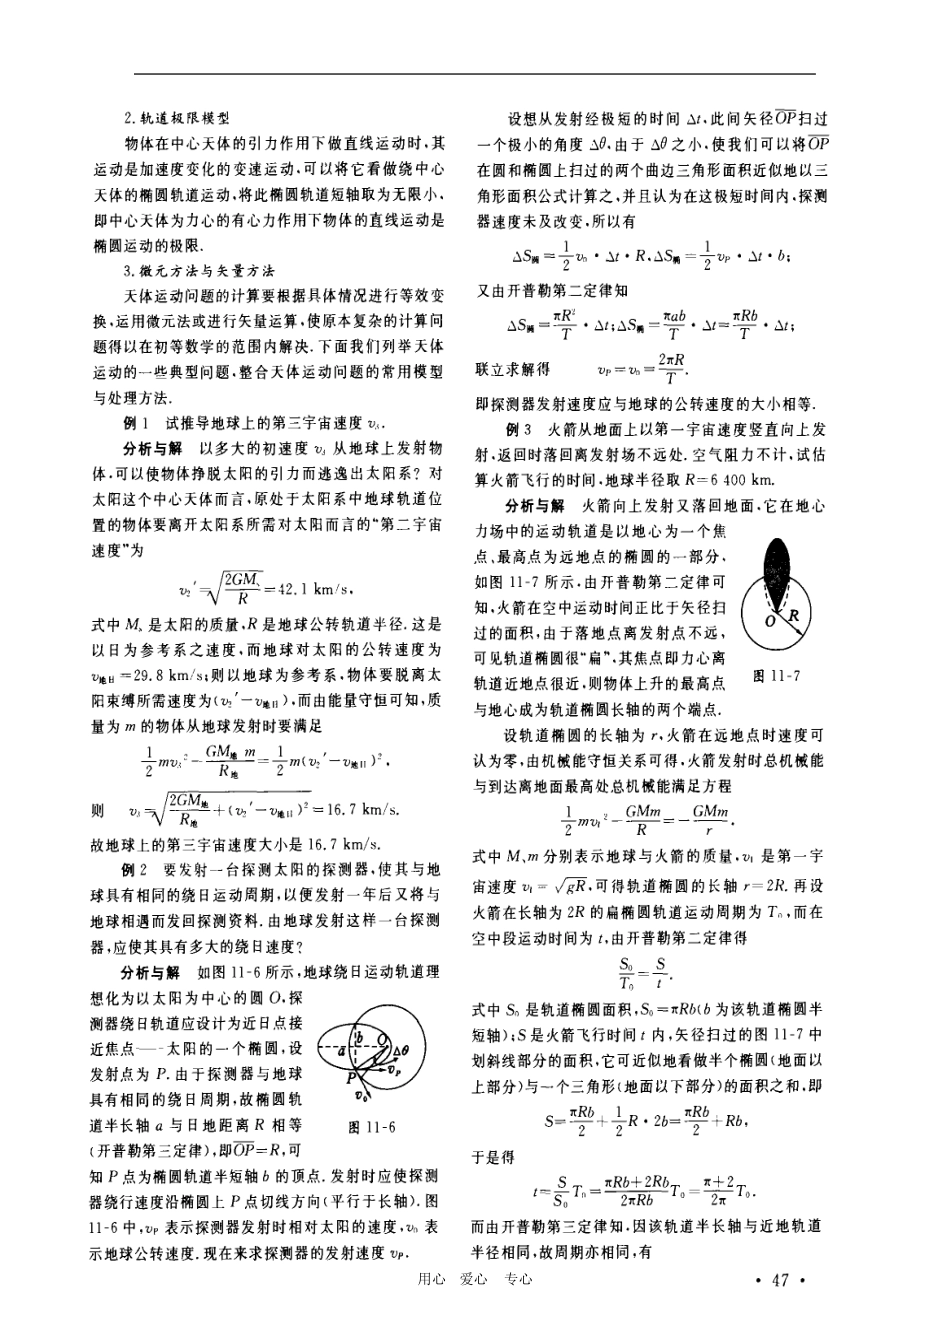 2.轨道极限模型
物体在中心天体的引力作用下做直线运动时,其
运动是加速度变化的变速运动,可以将它看做绕中心
天体的椭圆轨道运动,将此椭圆轨道短轴取为无限小,
即中心天体为力心的有心力作用下物体的直线运动是
椭圆运动的极限.
3.微元方法与矢量方法
天体运动问题的计算要根据具体情况进行等效变
换,运用微元法或进行矢量运算,使原本复杂的计算问
题得以在初等数学的范围内解决.下面我们列举天体
运动的一些典型问题,整合天体运动问题的常用模型
与处理方法.
例1 试推导地球上的第三宇宙速度 v₃.
分析与解 以多大的初速度 v₃ 从地球上发射物
体,可以使物体挣脱太阳的引力而逃逸出太阳系?对
太阳这个中心天体而言,原处于太阳系中地球轨道位
置的物体要离开太阳系所需对太阳而言的“第二宇宙
速度”为
v₂′=√(2GMₛ/R)=42.1 km/s,
式中 Mₛ 是太阳的质量,R 是地球公转轨道半径.这是
以日为参考系之速度,而地球对太阳的公转速度为
v地日=29.8 km/s;则以地球为参考系,物体要脱离太
阳束缚所需速度为(v₂′−v地日),而由能量守恒可知,质
量为 m 的物体从地球发射时要满足
1/2 mv₃²−GM地m/R地=1/2 m(v₂′−v地日)²,
则 v₃=√(2GM地/R地+(v₂′−v地日)²)=16.7 km/s.
故地球上的第三宇宙速度大小是 16.7 km/s.
例2 要发射一台探测太阳的探测器,使其与地
球具有相同的绕日运动周期,以便发射一年后又将与
地球相遇而发回探测资料.由地球发射这样一台探测
器,应使其具有多大的绕日速度?
分析与解 如图 11-6 所示,地球绕日运动轨道理
想化为以太阳为中心的圆 O,探
测器绕日轨道应设计为近日点接
近焦点——太阳的一个椭圆,设
发射点为 P.由于探测器与地球
具有相同的绕日周期,故椭圆轨
道半长轴 a 与日地距离 R 相等
(开普勒第三定律),即OP=R,可
b O
a Δθ
P vP
v₀
图 11-6
知 P 点为椭圆轨道半短轴 b 的顶点.发射时应使探测
器绕行速度沿椭圆上 P 点切线方向(平行于长轴).图
11-6 中,vP 表示探测器发射时相对太阳的速度,v₀ 表
示地球公转速度.现在来求探测器的发射速度 vP.
设想从发射经极短的时间 Δt,此间矢径OP扫过
一个极小的角度 Δθ,由于 Δθ 之小,使我们可以将OP
在圆和椭圆上扫过的两个曲边三角形面积近似地以三
角形面积公式计算之,并且认为在这极短时间内,探测
器速度未及改变,所以有
ΔS圆=1/2 v₀·Δt·R,ΔS椭=1/2 vP·Δt·b;
又由开普勒第二定律知
ΔS圆=πR²/T·Δt;ΔS椭=πab/T·Δt=πRb/T·Δt;
联立求解得 vP=v₀=2πR/T.
即探测器发射速度应与地球的公转速度的大小相等.
例3 火箭从地面上以第一宇宙速度竖直向上发
射,返回时落回离发射场不远处.空气阻力不计,试估
算火箭飞行的时间,地球半径取 R=6 400 km.
分析与解 火箭向上发射又落回地面,它在地心
力场中的运动轨道是以地心为一个焦
点、最高点为远地点的椭圆的一部分,
如图 11-7 所示.由开普勒第二定律可
知,火箭在空中运动时间正比于矢径扫
过的面积,由于落地点离发射点不远,
可见轨道椭圆很“扁”,其焦点即力心离
轨道近地点很近,则物体上升的最高点
O R
图 11-7
与地心成为轨道椭圆长轴的两个端点.
设轨道椭圆的长轴为 r,火箭在远地点时速度可
认为零,由机械能守恒关系可得,火箭发射时总机械能
与到达离地面最高处总机械能满足方程
1/2 mv₁²−GMm/R=−GMm/r.
式中 M、m 分别表示地球与火箭的质量,v₁ 是第一宇
宙速度 v₁=√gR,可得轨道椭圆的长轴 r=2R.再设
火箭在长轴为 2R 的扁椭圆轨道运动周期为 T₀,而在
空中段运动时间为 t,由开普勒第二定律得
S₀/T₀=S/t.
式中 S₀ 是轨道椭圆面积,S₀=πRb(b 为该轨道椭圆半
短轴);S 是火箭飞行时间 t 内,矢径扫过的图 11-7 中
划斜线部分的面积,它可近似地看做半个椭圆(地面以
上部分)与一个三角形(地面以下部分)的面积之和,即
S=πRb/2+1/2 R·2b=πRb/2+Rb,
于是得
t=S/S₀ T₀=(πRb+2Rb)/2πRb T₀=(π+2)/2π T₀.
而由开普勒第三定律知,因该轨道半长轴与近地轨道
半径相同,故周期亦相同,有
用心 爱心 专心
·47·